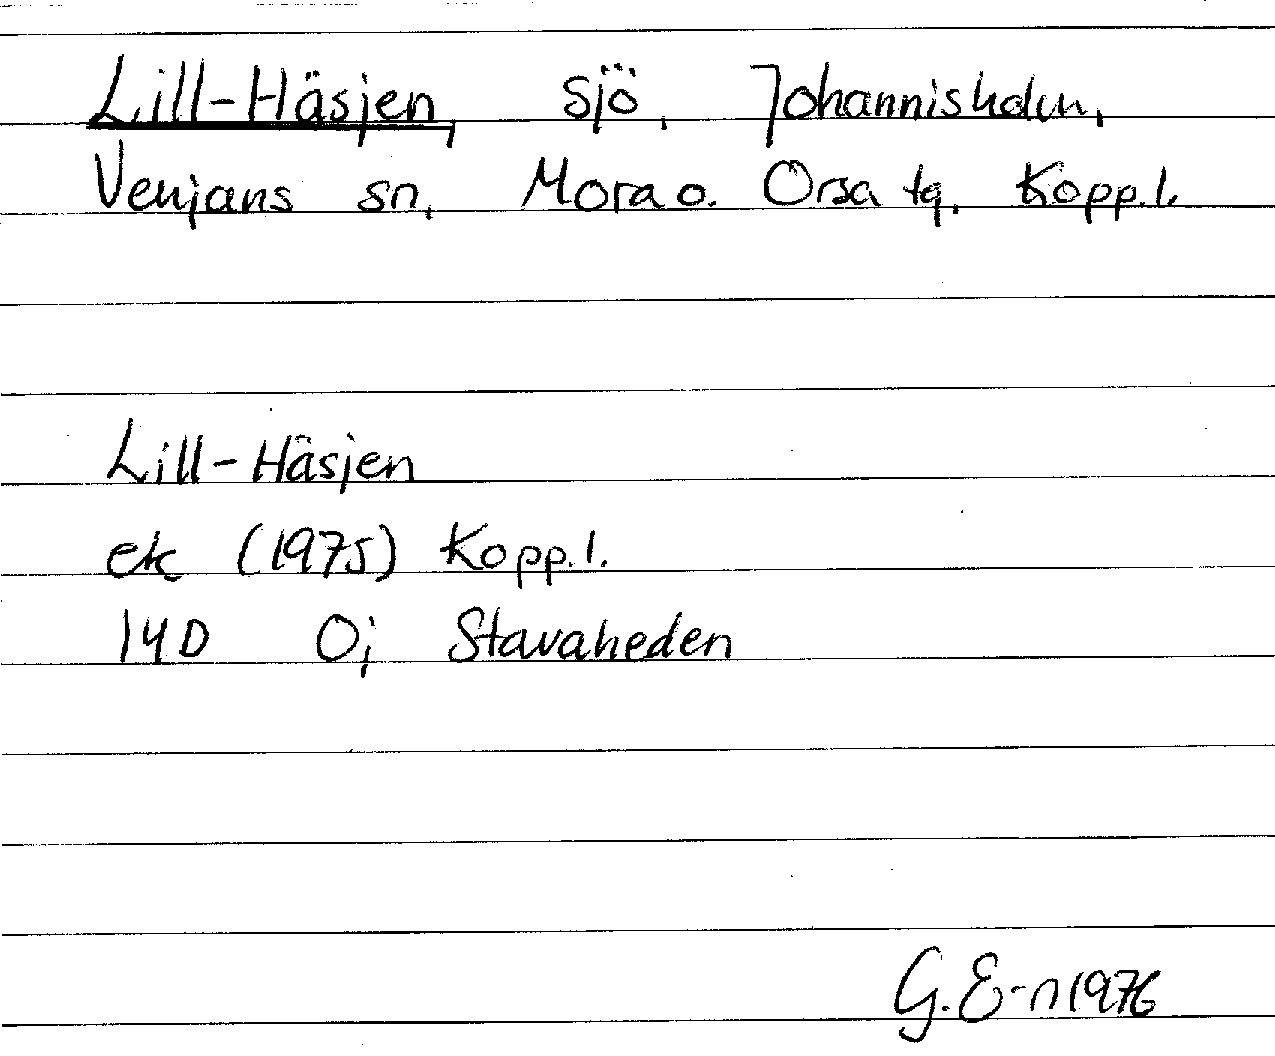 Lill-Häsjen, sjö, Johannisholm,
Venjans sn, Mora o. Orsa tg, Kopp.l.
Lill-Häsjen
ek (1975) Kopp.l.
14D 0j Stavaheden
G.E-n 1976